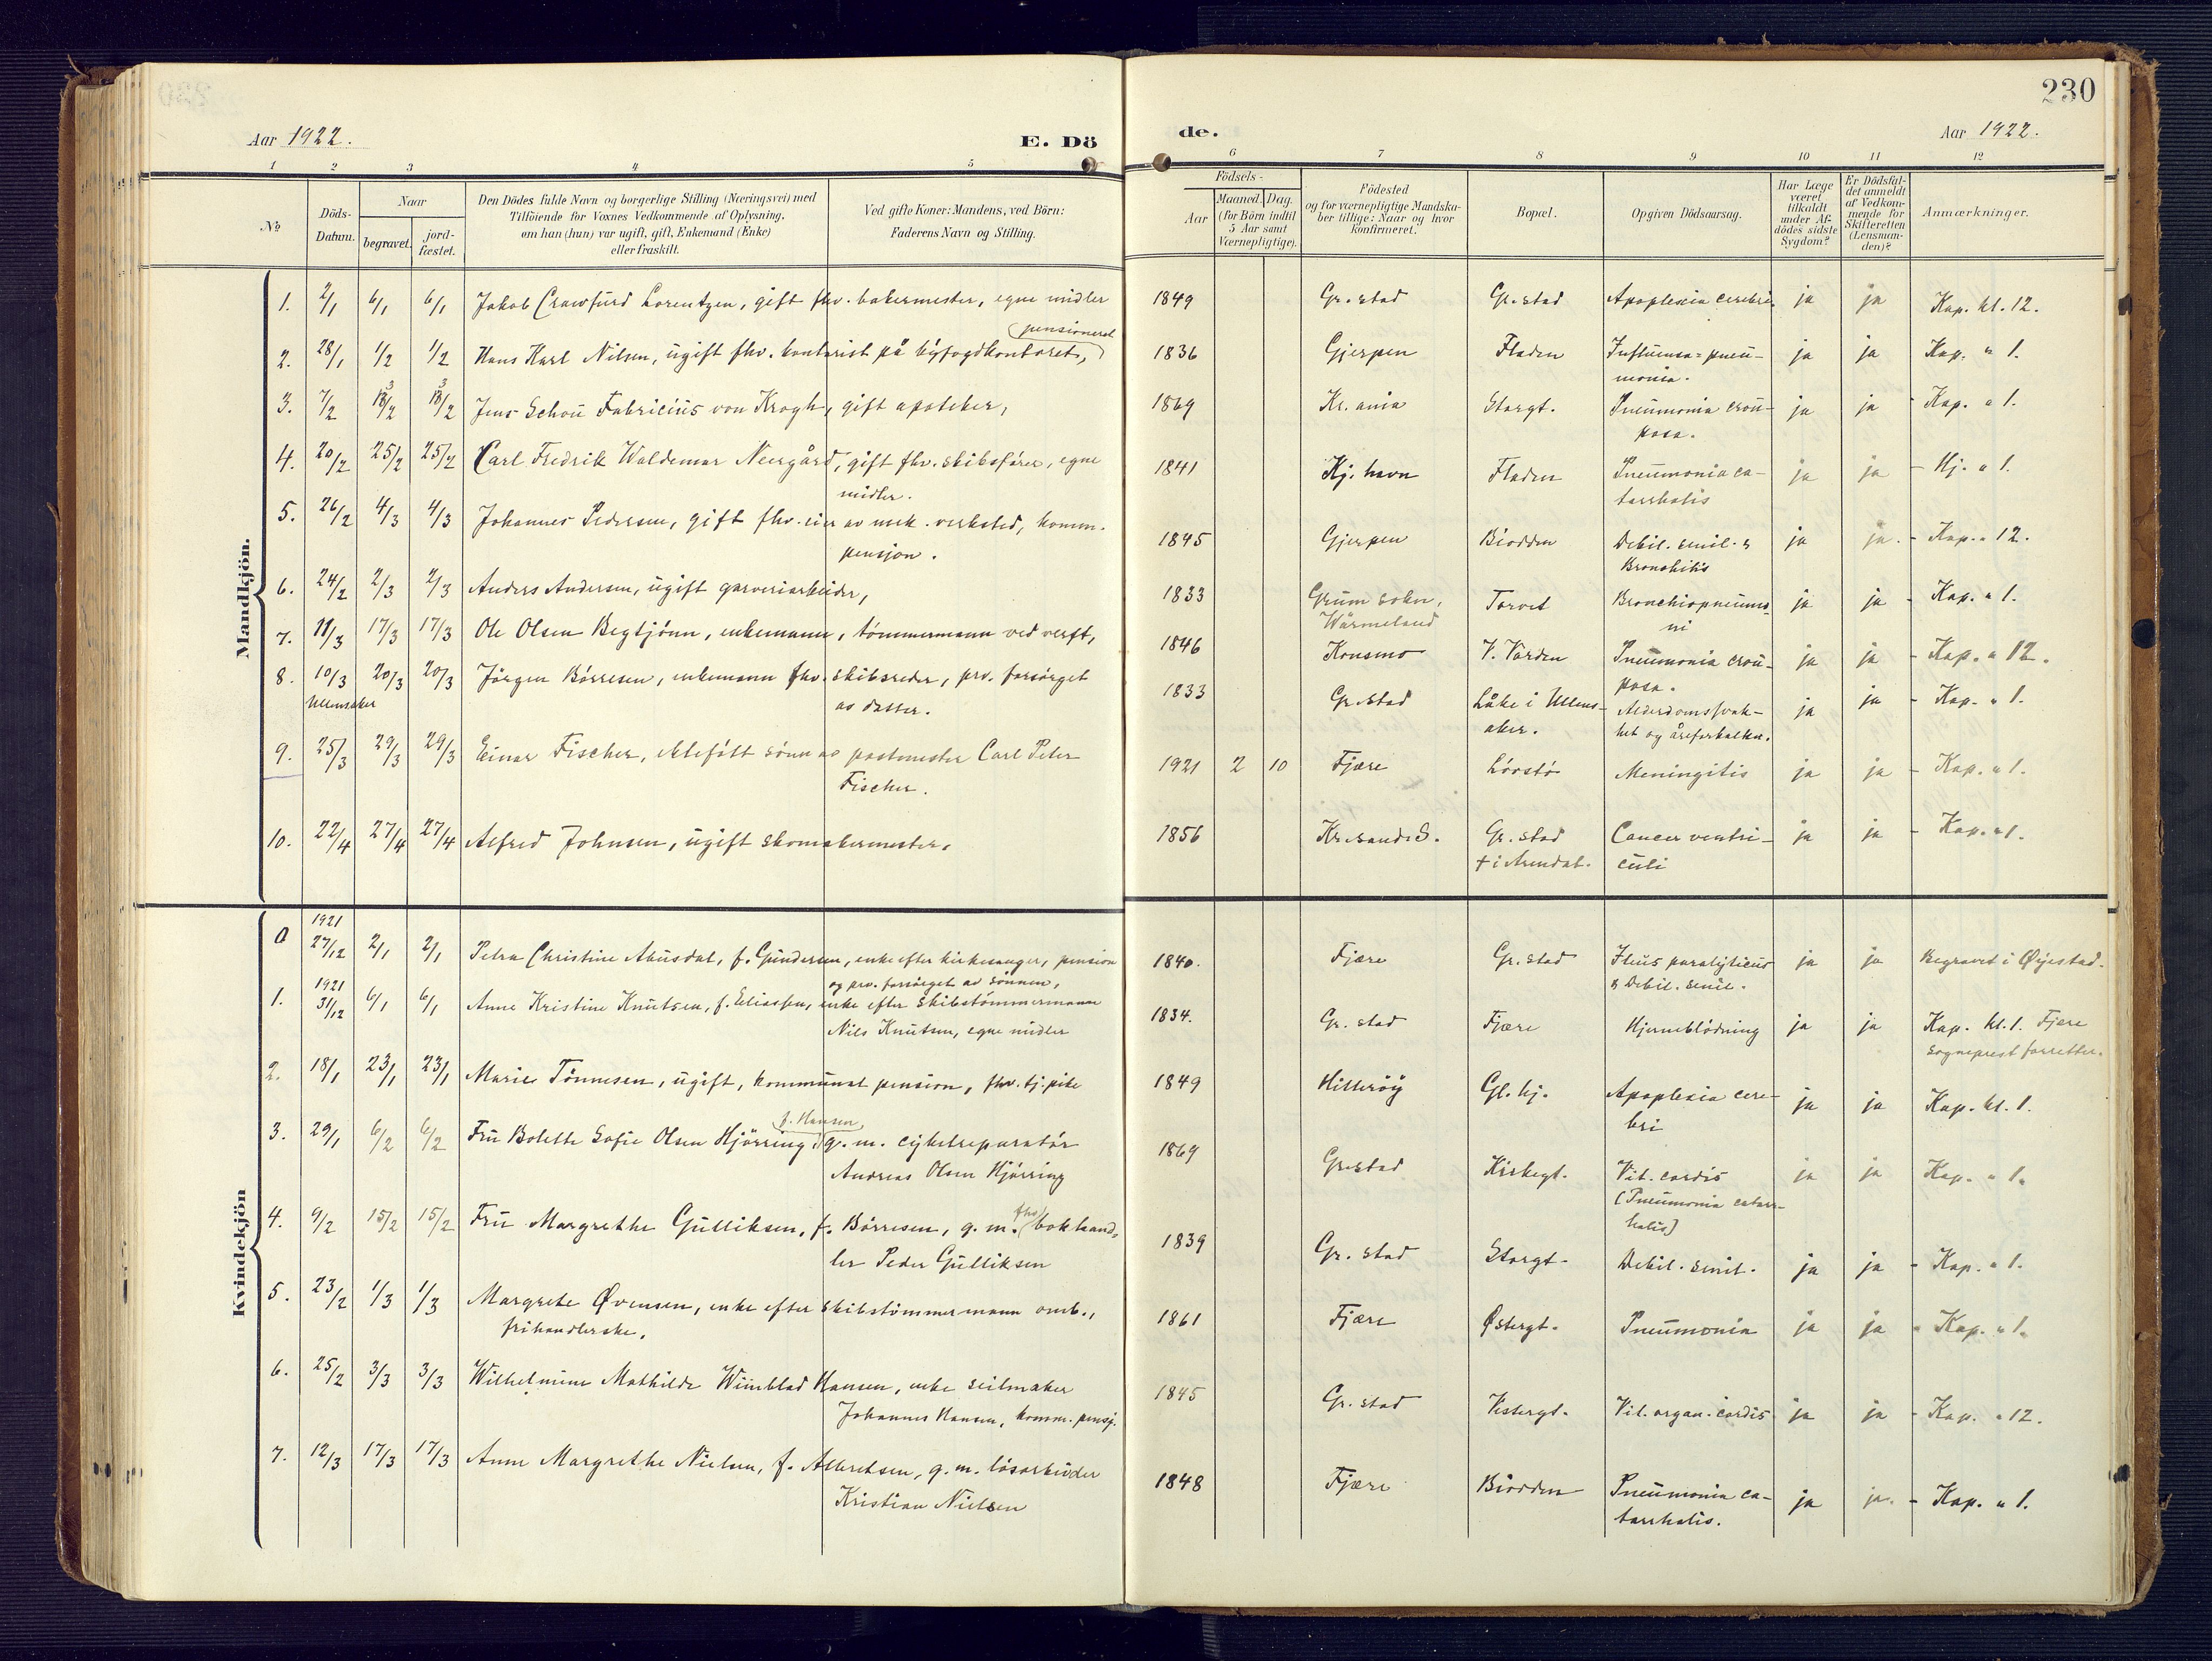 230
Aar 1922. E. Dö de. Aar 1922.
1 2 3 4 5 6 7 8 9 10 11 12
No
Döds-
Datum.
Naar
begravet.
jord-
fæstet.
Den Dödes fulde Navn og borgerlige Stilling (Næringsvei) med
Tilföiende for Voxnes Vedkommende af Oplysning,
om han (hun) var ugift, gift, Enkemand (Enke)
eller fraskilt.
Ved gifte Koner: Mandens, ved Börn:
Faderens Navn og Stilling.
Födsels-
Aar
Maaned. Dag.
(for Börn indtil
5 Aar samt
Værnepligtige).
Födested
og for værnepligtige Mandska-
ber tillige: Naar og hvor
konfirmeret.
Bopæl.
Opgiven Dödsaarsag.
Har Læge
været
tilkaldt
under Af-
dödes sidste
Sygdom?
Er Dödsfal-
det anmeldt
af Vedkom-
mende for
Skifteretten
(Lensman-
den)?
Anmærkninger.
Mandkjön.
1. 2/1 6/1 6/1 Jakob Crawfurd Lorentzen, gift fhv. bakermester, egne midler 1849 Gr.stad Gr.stad Apoplexia cerebri. ja ja Kap. kl. 12.
pensioneret
2. 28/1 1/2 1/2 Hans Karl Nilsen, ugift fhv. kontorist på byfogdkontoret, 1836 Gjerpen Fladen Influensa=pneu-
monia. ja ja Kap. " 1.
3. 7/2 13/2 13/2 Jens Schou Fabricius von Krogh, gift apoteker, 1869 Kr.ania Storgt. Pneumonia crou-
posa. ja ja Kap. " 1.
4. 20/2 25/2 25/2 Carl Fredrik Waldemar Neergård, gift fhv. skibsfører, egne
midler. 1841 Kj.havn Fladen Pneumonia ca-
tarrhalis ja ja - Kj. " 1.
5. 26/2 4/3 4/3 Johannes Pedersen, gift fhv. eier av mek. verksted, komm.
pensjon. 1845 Gjerpen Biodden Debil. senil. &
Bronchitis ja ja. - Kap. " 12.
6. 24/2 2/3 2/3 Anders Andersen, ugift garveriarbeider, 1833 Grum sokn,
Wärmeland Torvet Bronchiopneumo-
ni ja ja - Kap. " 1.
7. 11/3 17/3 17/3 Ole Olsen Begtjønn, enkemann, tømmermann ved verft, 1846 Konsmo V. Varden Pneumonia crou-
posa. ja ja - Kap. " 12.
8. 10/3 20/3 20/3 Jørgen Børresen, enkemann fhv. skibsreder, prv. forsørget
Ullensaker av datter. 1833 Gr.stad Låke i Ullens-
aker. Alderdomssvak-
het og åreforkalkn. ja ja - Kap. " 1.
9. 25/3 29/3 29/3 Einar Fischer, ektefødt sønn av postmester Carl Peter
Fischer. 1921 2 10 Fjære Løvstø Meningitis ja ja - Kap. " 1.
10. 22/4 27/4 27/4 Alfred Johnsen, ugift skomakermester. 1856 Kr.sand S. Gr.stad
† i Arendal. Cancer ventri-
culi ja ja - Kap. " 1.
Kvindekjön
a 1921
27/12 2/1 2/1 Petra Christine Åbusdal, f. Gundersen, enke efter kirkesanger, pension
og prv. forsørget av sønnen, 1840. Fjære Gr.stad Ileus paralyticus
& Debil. senil. ja ja Begravet i Øiestad.
1. 1921
31/12 6/1 6/1 Anne Kristine Knutsen, f. Eliassen, enke efter skibstømmermann
Nils Knutsen, egne midler 1834. Gr.stad Fjære Hjerneblødning ja ja Kap. kl. 1. Fjære
sogneprest forretter.
2. 18/1 23/1 23/1 Marie Tønnesen, ugift, kommunal pension, fhv. tj.pike 1849 Hitterøy Gl. kj. Apoplexia cere-
bri ja ja Kap. kl. 1.
f. Hansen
3. 29/1 6/2 6/2 Fru Bolette Sofie Olsen Hjørring, g. m. cykelreparatør
Andreas Olsen Hjørring 1869 Gr.stad Kirkegt. Vit. cordis
(Pneumonia catarr-
halis) ja ja Kap. " 1.
4. 9/2 15/2 15/2 Fru Margrethe Gulliksen, f. Børresen, g. m. fhv bokhand-
ler Peder Gulliksen 1839 Gr.stad Storgt. Debil. senil. ja ja - Kap. " 1.
5. 23/2 1/3 1/3 Margrete Øvensen, enke efter skibstømmermann omb.,
frihandlerske. 1861 Fjære Østergt. Pneumonia ja ja - Kap. " 1.
6. 25/2 3/3 3/3 Wilhelmine Mathilde Wiinblad Hansen, enke seilmaker
Johannes Hansen, komm. pensj. 1845 Gr.stad Vestergt. Vit. organ. cordis ja ja - Kap. " 12.
7. 12/3 17/3 17/3 Anne Margrethe Nielsen, f. Albretsen, g. m. løsarbeider
Kristian Nielsen 1848 Fjære Biodden Pneumonia ca-
tarrhalis. ja ja. - Kap. " 1.